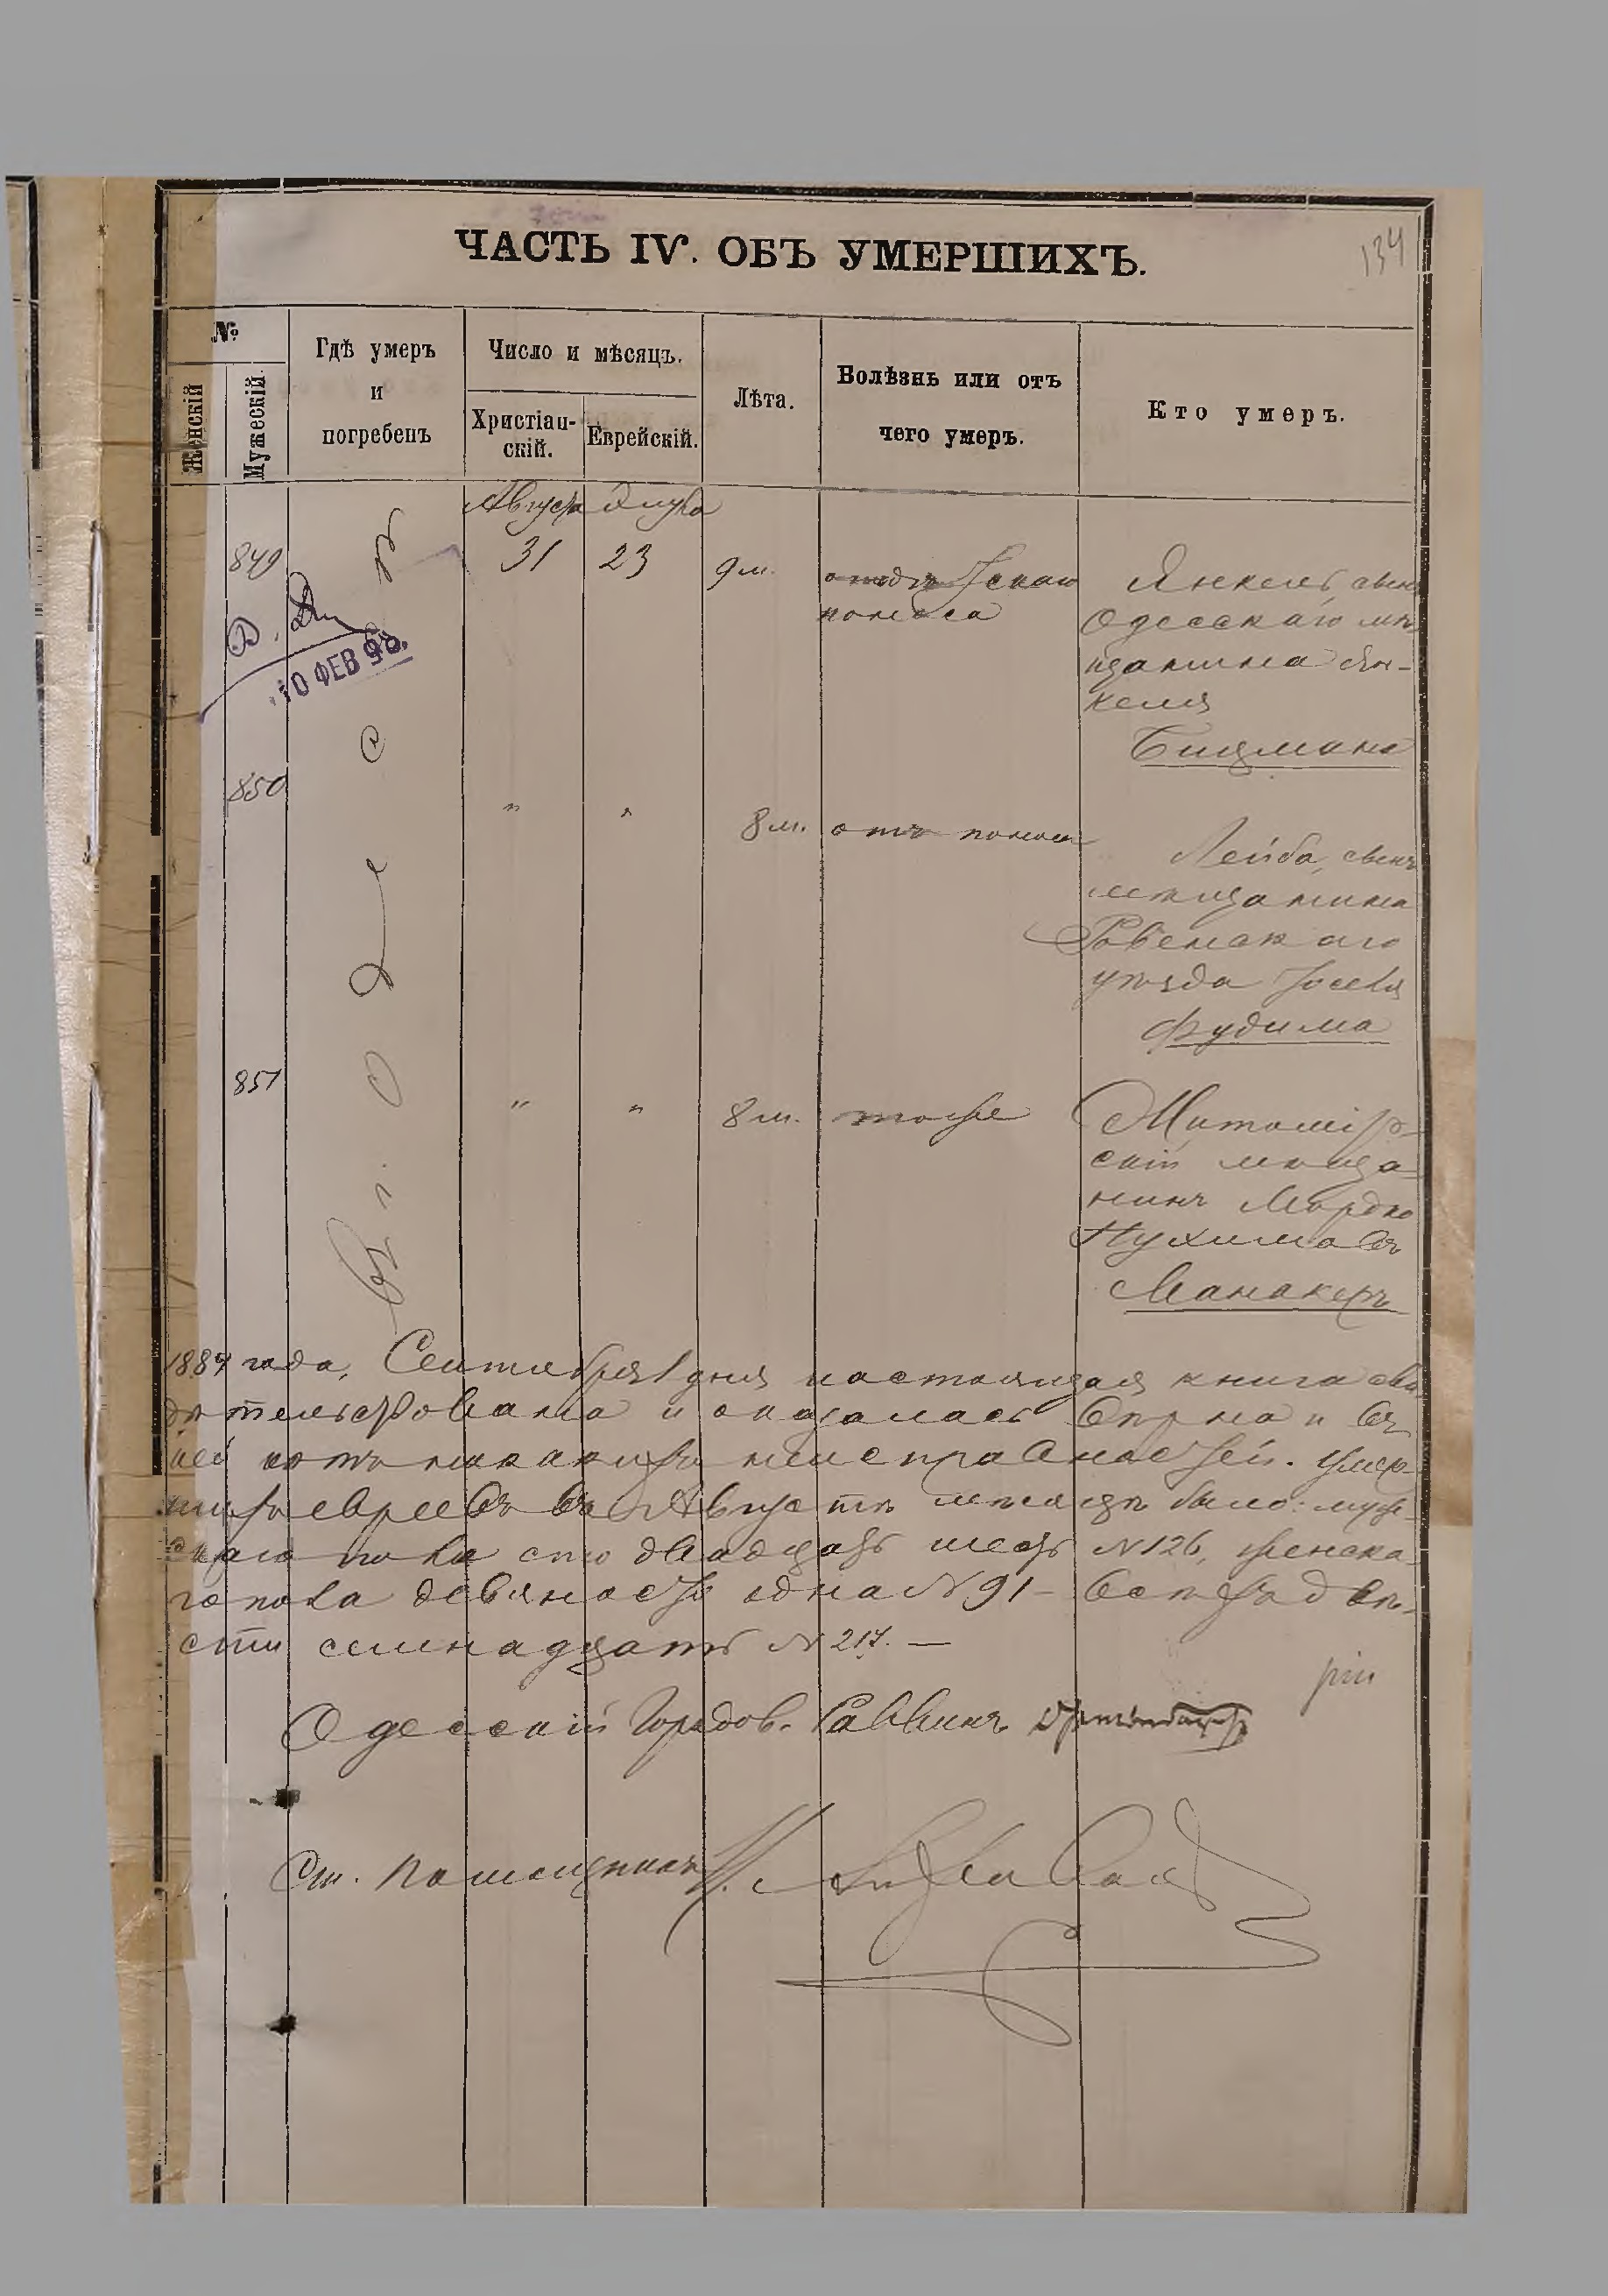 ЧАСТЬ IV. ОБЪ УМЕРШИХЪ.
134
№
Женскій
Мужескій.
Гдѣ умеръ
и
погребенъ
Число и мѣсяцъ.
Христіан-
скій.
Еврейскій.
Лѣта.
Болѣзнь или отъ
чего умеръ.
Кто умеръ.
Въ г. Одессѣ
Августа Элула
849 31 23 9 м. отъ дѣтскаго
поноса
Янкель, сынъ
Одесскаго мѣ
щанина Ян-
келя
10 ФЕВ 98.
850 " " 8 м. отъ поноса
Лейба, сынъ
мѣщанина
Ровенскаго
уѣзда Іосефа
Фудима
851 " " 8 м. тоже
Житомір-
скій мѣща-
нинъ Мордко
Нухимовъ
Манакеръ
188 года, Сентября 1 дня настоящая книга сви
дѣтельствована и оказалась вѣрна и въ
ней нѣтъ никакихъ неисправностей. Умер-
шихъ евреевъ въ Августѣ мѣсяцѣ было: муже-
скаго пола сто двадцать шесть N 126, женска-
го пола девяносто одна N 91 – всего двѣ-
сти семнадцать N 217. —
Одесскій Городов. Раввинъ
Ст. Помощникъ